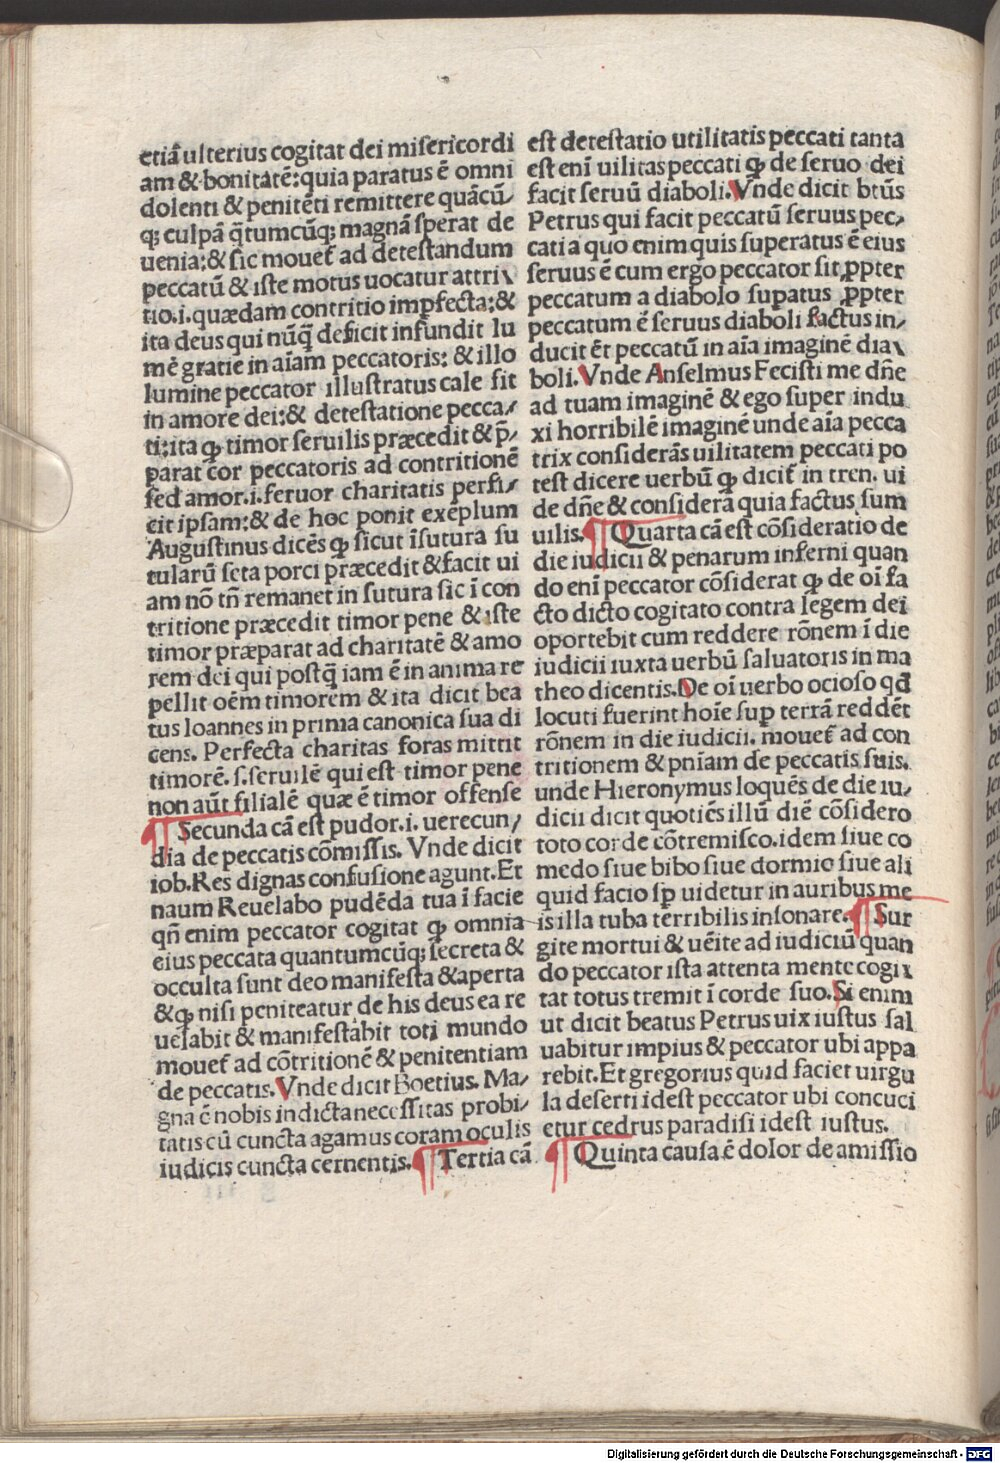 etiā ulterius cogitat dei misericordi
am & bonitatē: quia paratus ē omni
dolenti & penitēti remittere quācū/
q; culpā q̄tumcūq; magnā sperat de
uenia: & sic mouet᷑ ad detestandum
peccatū & iste motus uocatur attri\
tio.i.quædam contritio imꝑfecta: &
ita deus qui nūq̄ deficit infundit lu
mē gratie in aīam peccatoris: & illo
lumine peccator illustratus cale fit
in amore dei: & detestatione pecca/
ti: ita ꝙ timor seruilis præcedit & p̄/
parat cor peccatoris ad contritionē
sed amor.i.feruor charitatis perfi/
cit ipsam: & de hoc ponit exēplum
Augustinus dicēs ꝙ sicut īsutura su
tularū seta porci præcedit & facit ui
am nō tn̄ remanet in sutura sic ī con
tritione præcedit timor pene & iste
timor præparat ad charitatē & amo
rem dei qui postq̄ iam ē in anima re
pellit oēm timorem & ita dicit bea
tus Ioannes in prima canonica sua di
cens. Perfecta charitas foras mittit
timorē. s.seruilē qui est timor pene
non aūt filialē quæ ē timor offense
¶ Secunda cā est pudor.i. uerecun/
dia de peccatis cōmissis. Vnde dicit
iob. Res dignas confusione agunt. Et
naum Reuelabo pudēda tua ī facie
qn̄ enim peccator cogitat ꝙ omnia
eius peccata quantumcūq; secreta &
occulta sunt deo manifesta & aperta
& ꝙ nisi peniteatur de his deus ea re
uelabit & manifestabit toti mundo
mouet᷑ ad cōtritionē & penitentiam
de peccatis. Vnde dicit Boetius. Ma/
gna ē nobis indicta necessitas probi/
tatis cū cuncta agamus coram oculis
iudicis cuncta cernentis. ¶ Tertia cā
est detestatio utilitatis peccati tanta
est enī uilitas peccati ꝙ de seruo dei
facit seruū diaboli. Vnde dicit btūs
Petrus qui facit peccatū seruus pec/
cati a quo enim quis superatus ē eius
seruus ē cum ergo peccator sit ꝓpter
peccatum a diabolo suꝑatus ꝓpter
peccatum ē seruus diaboli factus in/
ducit ēt peccatū in aīa imaginē dia\
boli. Vnde Anselmus Fecisti me dn̄e
ad tuam imaginē & ego super indu
xi horribilē imaginē unde aīa pecca
trix considerās uilitatem peccati po
test dicere uerbū ꝙ dicit᷑ in tren. ui
de dn̄e & considera quia factus sum
uilis. ¶ Quarta cā est cōsideratio de
die iudicii & penarum inferni quan
do enī peccator cōsiderat ꝙ de oī fa
cto dicto cogitato contra legem dei
oportebit eum reddere rōnem ī die
iudicii iuxta uerbū saluatoris in ma
theo dicentis. De oī uerbo ocioso qd̄
locuti fuerint hoīe suꝑ terrā reddēt
rōnem in die iudicii. mouet᷑ ad con
tritionem & pn̄iam de peccatis suis.
unde Hieronymus loquēs de die iu/
dicii dicit quotiēs illū diē cōsidero
toto corde cōtremisco. idem siue co
medo siue bibo siue dormio siue ali
quid facio sꝑ uidetur in auribus me
is illa tuba terribilis insonare. ¶ Sur
gite mortui & uēite ad iudiciū quan
do peccator ista attenta mente cogi\
tat totus tremit ī corde suo. Si enim
ut dicit beatus Petrus uix iustus sal
uabitur impius & peccator ubi appa
rebit. Et gregorius quid faciet uirgu
la deserti idest peccator ubi concuci
etur cedrus paradisi idest iustus.
¶ Quinta causa ē dolor de amissio
Digitalisierung gefördert durch die Deutsche Forschungsgemeinschaft - DFG